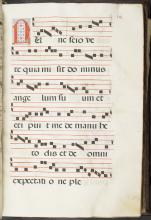 ne scio ve
re quia mi sit do minus
ange lum su um et
eri pu it me de manu he
ro dis et de omni
expectati o ne ple